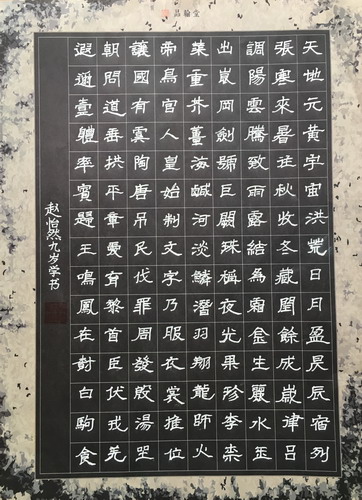 品翰堂
天地元黄宇宙洪荒日月盈昃辰宿列
張寒來暑往秋收冬藏閏餘成歲律吕
調陽雲騰致雨露結為霜金生麗水玉
出崑岡劍號巨闕珠稱夜光果珍李柰
菜重芥薑海鹹河淡鱗潛羽翔龍師火
帝鳥官人皇始制文字乃服衣裳推位
讓國有虞陶唐吊民伐罪周發殷湯坐
朝問道垂拱平章愛育黎首臣伏戎羌
遐邇壹體率賓歸王鳴鳳在樹白駒食
赵怡然九岁学书